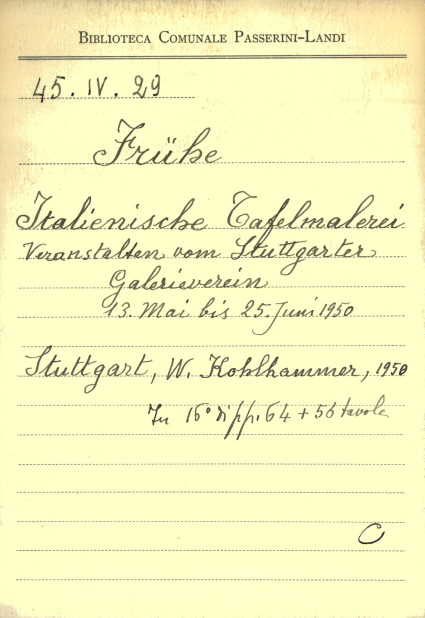 BIBLIOTECA COMUNALE PASSERINI-LANDI
45. IV. 29
Frühe
Italienische Tafelmalerei
Veranstalten vom Stuttgarter
Galerieverein
13. Mai bis 25. Juni 1950
Stuttgart, W. Kohlhammer, 1950
In 16° di pp. 64 + 56 tavole
C